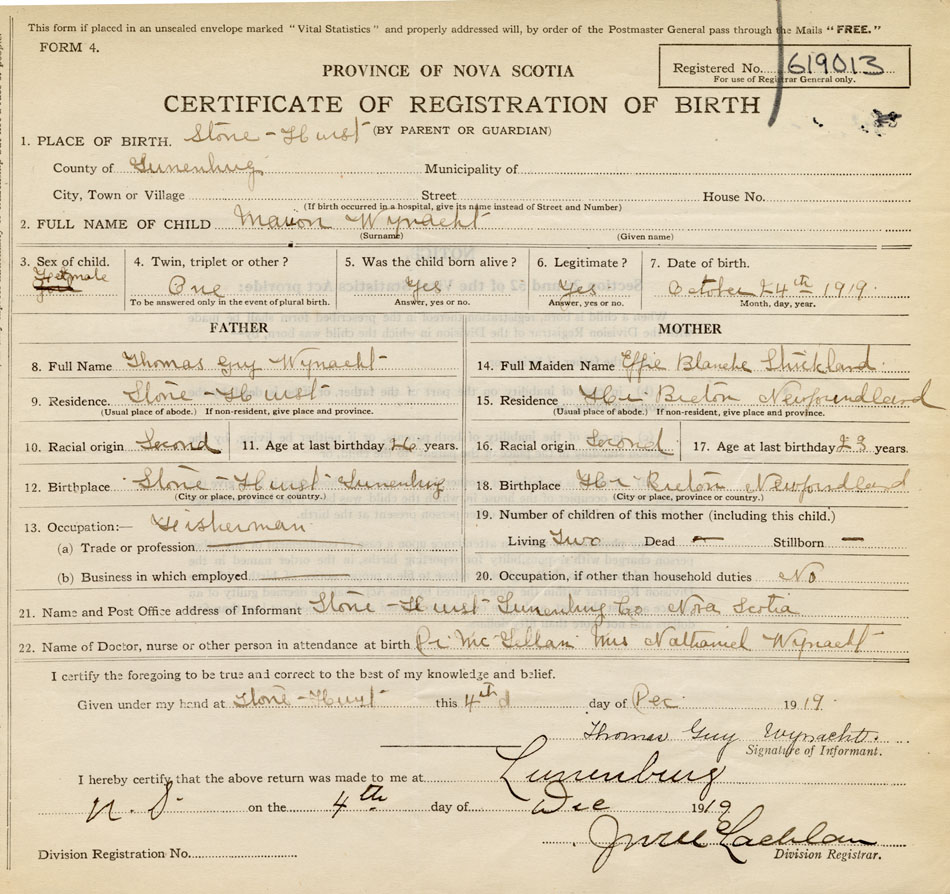 This form if placed in an unsealed envelope marked "Vital Statistics" and properly addressed will, by order of the Postmaster General pass through the Mails "FREE."
FORM 4.
Registered No. 619013
For use of Registrar General only.
PROVINCE OF NOVA SCOTIA
CERTIFICATE OF REGISTRATION OF BIRTH
(BY PARENT OR GUARDIAN)
1. PLACE OF BIRTH. Stone-Hurst
County of Lunenburg Municipality of
City, Town or Village Street House No.
(If birth occurred in a hospital, give its name instead of Street and Number)
2. FULL NAME OF CHILD Marion Wynacht
(Surname) (Given name)
3. Sex of child. 4. Twin, triplet or other? 5. Was the child born alive? 6. Legitimate? 7. Date of birth.
Female One Yes Yes October 24th 1919.
To be answered only in the event of plural birth. Answer, yes or no. Answer, yes or no. Month, day, year.
FATHER
8. Full Name Thomas Guy Wynacht
9. Residence. Stone-Hurst
(Usual place of abode.) If non-resident, give place and province.
10. Racial origin Second 11. Age at last birthday 26 years.
12. Birthplace Stone-Hurst Lunenburg
(City or place, province or country.)
13. Occupation:— Fisherman
(a) Trade or profession
(b) Business in which employed
MOTHER
14. Full Maiden Name Effie Blanche Strickland
15. Residence Hr Breton Newfoundland
(Usual place of abode.) If non-resident, give place and province.
16. Racial origin Second 17. Age at last birthday 23 years.
18. Birthplace Hr Breton Newfoundland
(City or place, province or country.)
19. Number of children of this mother (including this child.)
Living Two Dead — Stillborn —
20. Occupation, if other than household duties No
21. Name and Post Office address of Informant Stone-Hurst Lunenburg Co Nova Scotia
22. Name of Doctor, nurse or other person in attendance at birth Dr McLellan Mrs Nathaniel Wynacht
I certify the foregoing to be true and correct to the best of my knowledge and belief.
Given under my hand at Stone-Hurst this 4th day of Dec 1919.
Thomas Guy Wynacht.
Signature of Informant.
I hereby certify that the above return was made to me at Lunenburg
N.S. on the 4th day of Dec 1919
Lachlan
Division Registration No. Division Registrar.